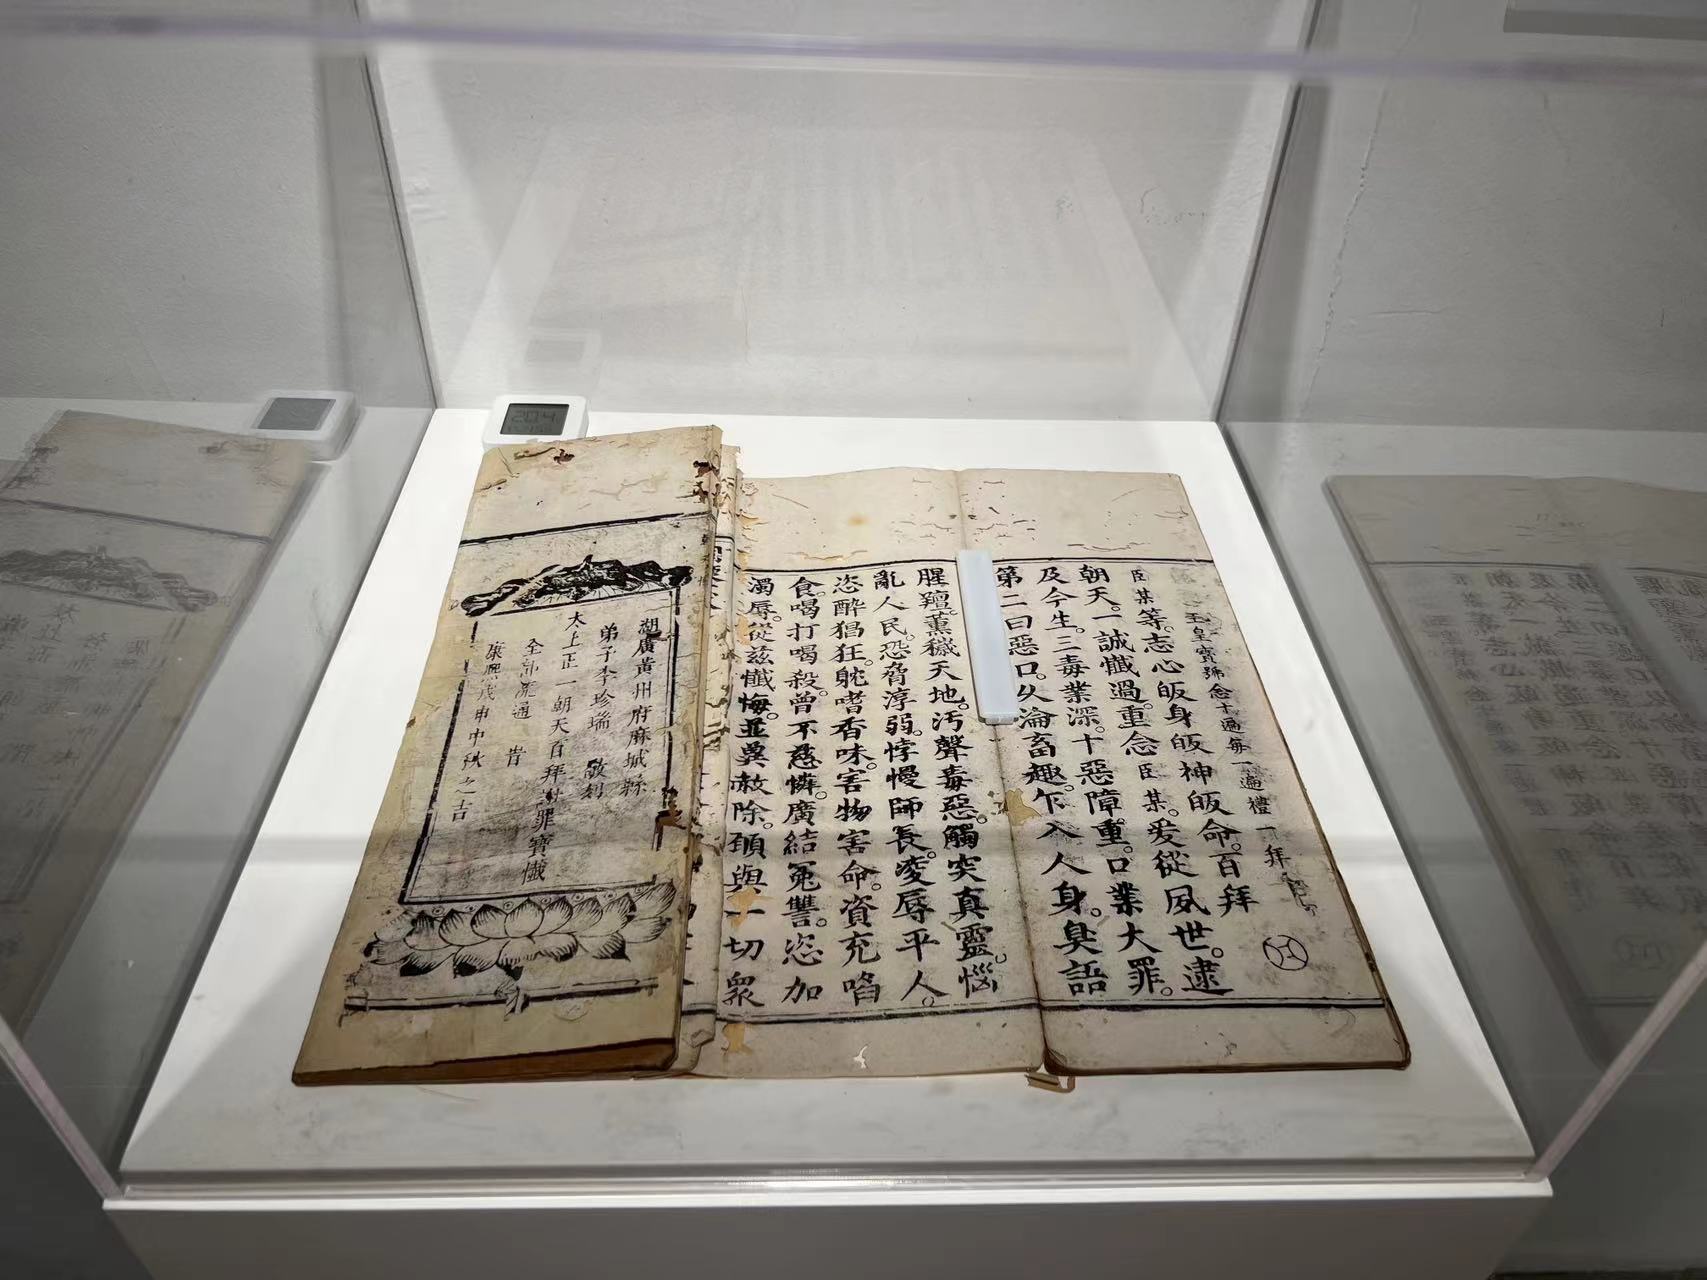 玉皇寳號念十遍每一遍禮一拜
臣某等。志心皈身皈神皈命。百拜
朝天。一誠懺過。重念臣某。爰從夙世。逮
及今生。三毒業深。十惡障重。口業大罪。
第二曰惡口。乆淪畜趣。乍入人身。臭語
腥羶。薰穢天地。汚聲毒惡。觸突真靈。惱
亂人民。恐脅淳弱。悖慢師長。凌辱平人。
恣酔猖狂。躭嗜香味。害物害命。資充啗
食。喝打喝殺。曾不慈憐。廣結冤讐。恣加
濁辱。從兹懺悔。並兾赦除。願與一切衆
湖廣黄州府麻城縣
弟子李珍瑞 敬刻
太上正一朝天百拜謝罪寶懺
全部流通 旹
康熙戊申中秋之吉
20.4